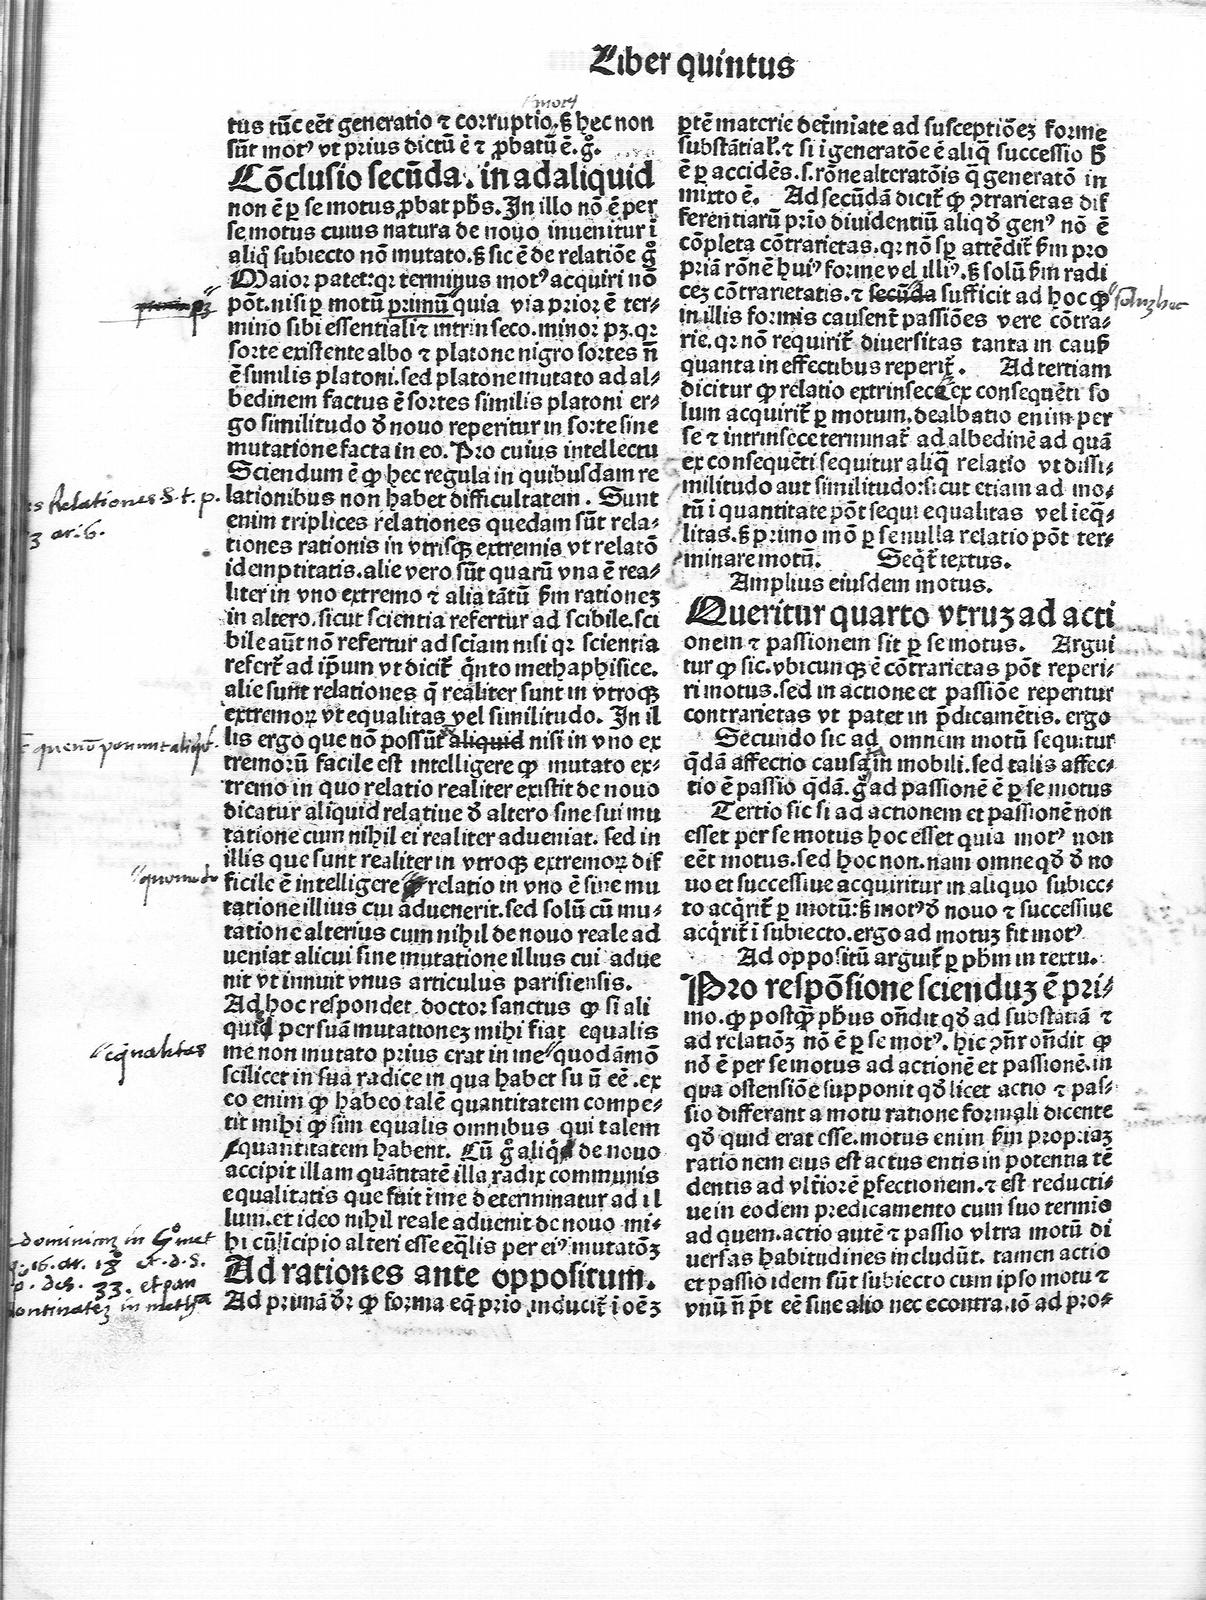 Liber quintus
tus tūc eēt generatio ⁊ corruptio. s hec non
sūt motꝰ vt prius dictū ē ⁊ ꝓbatū ē. gͦ.
Cōclusio secūda. in ad aliquid
non ē ꝑ se motus ꝓbat phs. In illo nō ē per
se motus cuius natura de nouo inuenitur ī
aliq̄ subiecto nō mutato. sꝫ sic ē de relatiōe gͦ
Maior patet: qꝛ terminus motꝰ acquiri nō
pōt. nisi ꝑ motū primū quia via prior ē ter-
mino sibi essentiali ⁊ intrinseco. minor pꝫ. qꝛ
sorte existente albo ⁊ platone nigro sortes nō
ē similis platoni. sed platone mutato ad al-
bedinem factus ē sortes similis platoni er-
go similitudo ꝺ̄ nouo reperitur in sorte sine
mutatione facta in eo. Pro cuius intellectu
Sciendum ē ꝙ hec regula in quibusdam re
lationibus non habet difficultatem. Sunt
enim triplices relationes quedam sūt rela-
tiones rationis in vtrisqꝫ extremis vt relatō
idemptitatis. alie vero sūt quarū vna ē rea-
liter in vno extremo ⁊ alia tātū ẜm rationeꝫ
in altero. sicut scientia refertur ad scibile. sci
bile aūt nō refertur ad sciam nisi qꝛ scientia
refert̄ ad ip̄um vt dicit̄ q̄nto methaphisice.
alie sunt relationes q̄ realiter sunt in vtroqꝫ
extremoꝝ vt equalitas vel similitudo. In il
lis ergo que nō possūt aliquid nisi in vno ex
tremorū facile est intelligere ꝙ mutato ex-
tremo in quo relatio realiter existit de nouo
dicatur aliquid relatiue ꝺ̄ altero sine sui mu
tatione cum nihil ei realiter adueniat. sed in
illis que sunt realiter in vtroqꝫ extremoꝝ dif
ficile ē intelligere ꝙ relatio in vno ē sine mu
tatione illius cui aduenerit. sed solū cū mu-
tatione alterius cum nihil de nouo reale ad
ueniat alicui sine mutatione illius cui adue
nit vt innuit vnus articulus parisiensis.
Ad hoc respondet doctor sanctus ꝙ si ali
quid per suā mutationeꝫ mihi fiat equalis
me non mutato prius erat in me quodāmō
scilicet in sua radice in qua habet suū eē. ex
eo enim ꝙ habeo talē quantitatem compe-
tit mihi ꝙ sim equalis omnibus qui talem
quantitatem habent. Cū gͦ aliq̄s de nouo
accipit illam quātitatē illa radix communis
equalitatis que fuit ī me determinatur ad il
lum. et ideo nihil reale aduenit de nouo mi-
hi cū īcipio alteri esse eq̄lis per eiꝰ mutatōꝫ
Ad rationes ante oppositum.
Ad primā dꝛ ꝙ forma eq̄ prio inducit̄ ī oēꝫ
ptē materie det̄miate ad susceptiōeꝫ forme
substātial. ⁊ si ī generatōe ē aliq̄ successio h
ē ꝑ accidēs. s. rōne alteratōis q̄ generatō in
mixto ē. Ad secūdā dicit̄ ꝙ ꝯtrarietas dif
ferentiarū prio diuidentiū aliqꝺ̄ genꝰ nō ē
cōpleta cōtrarietas. qꝛ nō sꝑ attēdit̄ ẜm pro
priā rōnē huiꝰ forme vel illiꝰ. sꝫ solū ẜm radi
ceꝫ cōtrarietatis. ⁊ secūda sufficit ad hoc ꝙ
in illis formis causent̄ passiōes vere cōtra-
rie. qꝛ nō requirit̄ diuersitas tanta in causꝭ
quanta in effectibus reperit̄. Ad tertiam
dicitur ꝙ relatio extrinsece ex consequēti so
lum acquirit̄ ꝑ motum. dealbatio enim per
se ⁊ intrinsece terminat̄ ad albedinē ad quā
ex consequēti sequitur aliq̄ relatio vt dissi-
militudo aut similitudo: sicut etiam ad mo-
tū ī quantitate pōt sequi equalitas vel ieq̄-
litas. sꝫ primo mō ꝑ se nulla relatio pōt ter-
minare motū. Seq̄t̄ textus.
Amplius eiusdem motus.
Queritur quarto vtruꝫ ad acti
onem ⁊ passionem sit ꝑ se motus. Argui
tur ꝙ sic. vbicunqꝫ ē cōtrarietas pōt reperi-
ri motus. sed in actione et passiōe reperitur
contrarietas vt patet in p̄dicamētis. ergo
Secundo sic ad omnem motū sequitur
q̄dā affectio causata in mobili. sed talis affec-
tio ē passio q̄dā. gͦ ad passionē ē ꝑ se motus
Tertio sic si ad actionem et passionē non
esset per se motus hoc esset quia motꝰ non
eēt motus. sed hoc non. nam omne qꝺ̄ ꝺ̄ no
uo et successiue acquiritur in aliquo subiec-
to acq̄rit̄ ꝑ motū: sꝫ motꝰ ꝺ̄ nouo ⁊ successiue
acq̄rit̄ ī subiecto. ergo ad motuꝫ fit motꝰ.
Ad oppositū arguit̄ ꝑ phm in textu.
Pro respōsione sciendūꝫ ē pri-
mo. ꝙ postꝗ̄ phus ondit qꝺ̄ ad substātiā ⁊
ad relatiōꝫ nō ē ꝑ se motꝰ. hic ꝯn̄r ondit ꝙ
nō ē per se motus ad actionē et passionē. in
qua ostensiōe supponit qꝺ̄ licet actio ⁊ pas-
sio differant a motu ratione formali dicente
qꝺ̄ quid erat esse. motus enim ẜm propriaꝫ
rationem eius est actus entis in potentia tē
dentis ad vlt̄iorē ꝑfectionem. ⁊ est reducti-
ue in eodem predicamento cum suo termio
ad quem. actio autē ⁊ passio vltra motū di
uersas habitudines includūt. tamen actio
et passio idem sūt subiecto cum ipso motu ⁊
vnū n̄ pōt eē sine alio nec econtra. iō ad pro-
Relationes S. t. p.
3 ar. 6.
quomodo
eq̄nalitas